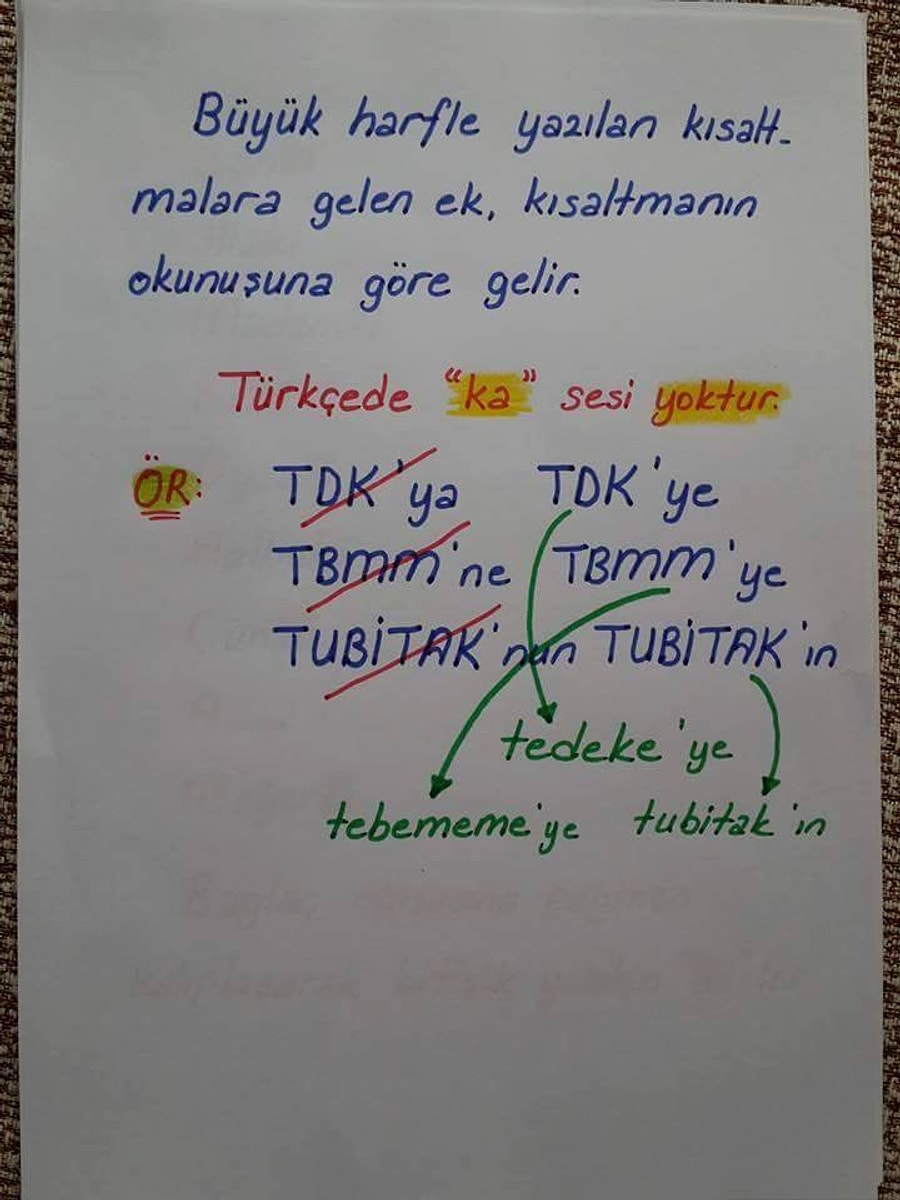 Büyük harfle yazılan kısalt-
malara gelen ek, kısaltmanın
okunuşuna göre gelir.
Türkçede "ka" sesi yoktur.
ÖR: TDK'ya TDK'ye
TBMM'ne TBMM'ye
TUBİTAK'nun TUBİTAK'ın
tedeke'ye
tebememe'ye tubitak'ın